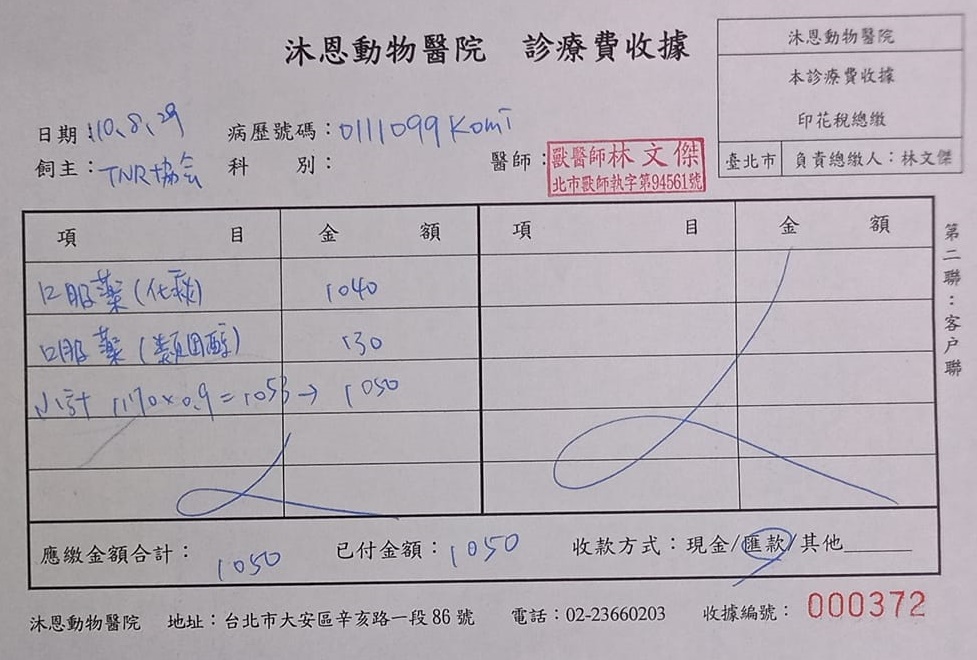 沐恩動物醫院 診療費收據
沐恩動物醫院
本診療費收據
印花稅總繳
臺北市 負責總繳人：林文傑
日期：110.8.29 病歷號碼：0111099 Komi
飼主：TNR協会 科別： 醫師：獸醫師林文傑
北市獸師執字第94561號
項目 金額 項目 金額
口服薬(化痰) 1040
口服薬(類固醇) 130
小計 1170×0.9=1053→ 1050
應繳金額合計：1050 已付金額：1050 收款方式：現金/匯款/其他
第二聯：客户聯
沐恩動物醫院 地址：台北市大安區辛亥路一段86號 電話：02-23660203 收據編號：000372